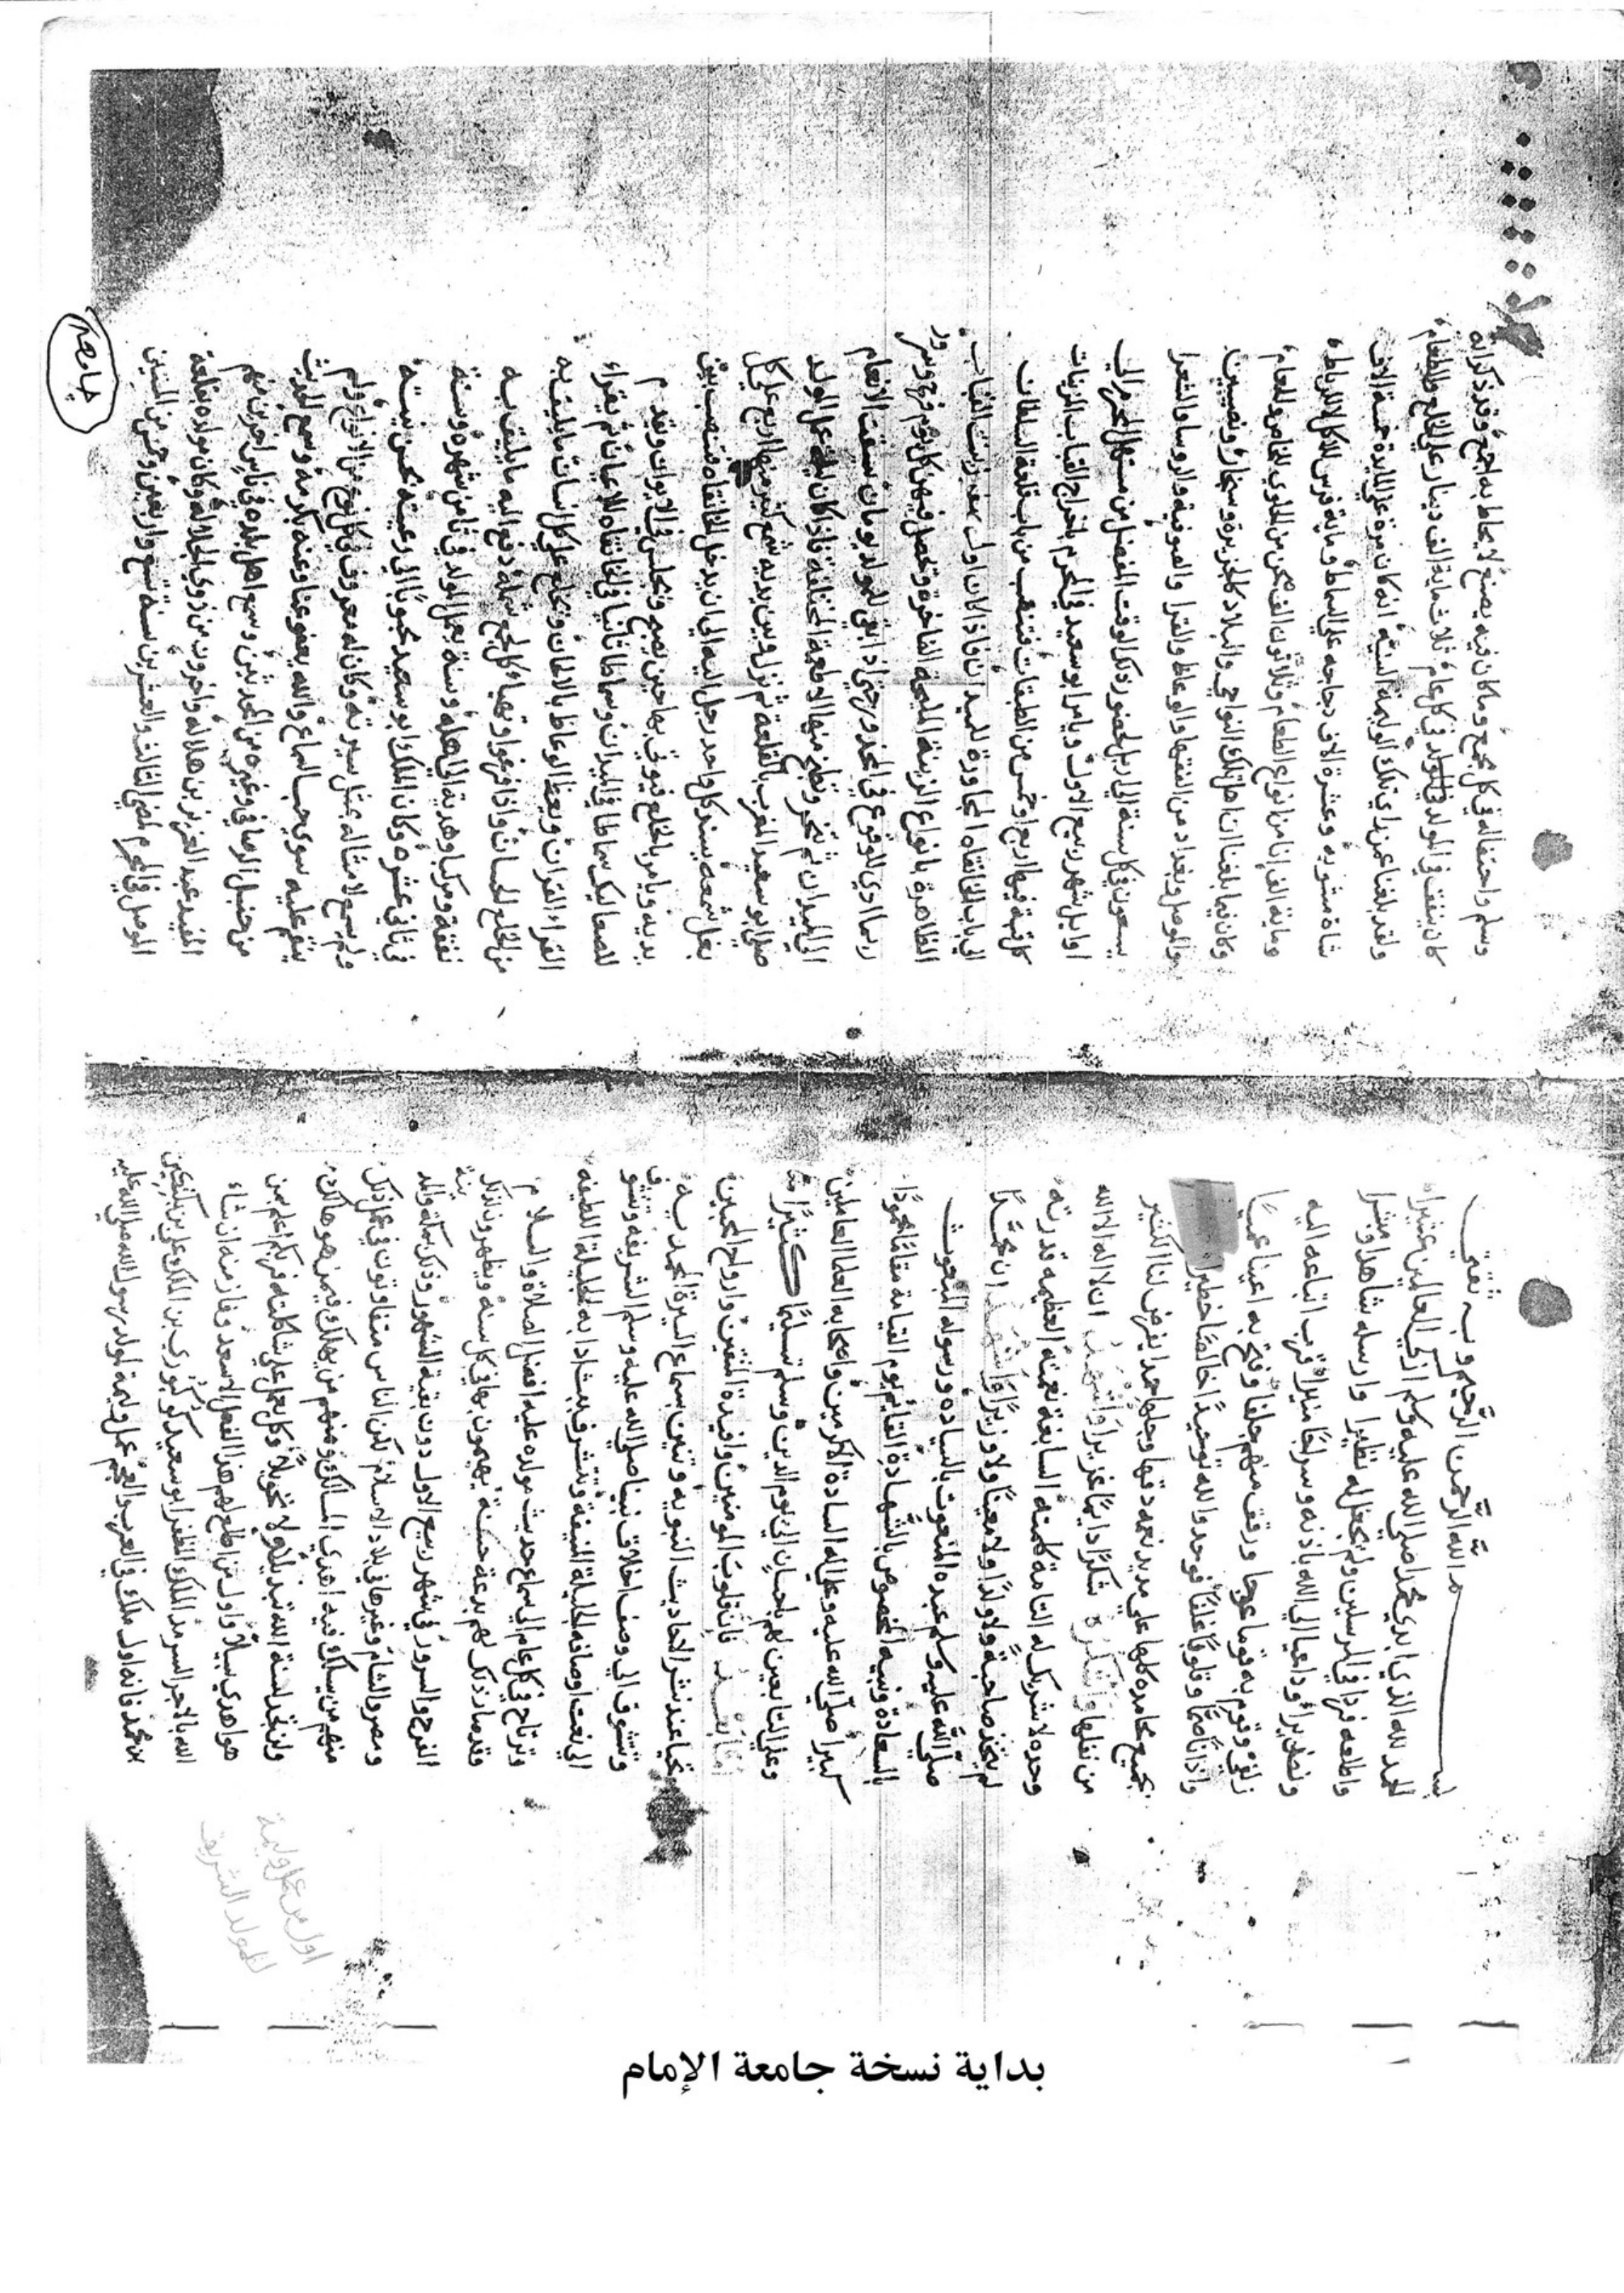 بسم الله الرحمن الرحيم وبه ثقتي
الحمد لله الذي ابدى محمدا صلى الله عليه وسلم ازكى العالمين
واطلعه فردا في المرسلين ولم يجعل له نظيرا وارسله شاهدا ومبشرا
ونصيرا وداعيا الى الله باذنه وسراجا منيرا قرب اتباعه اليه
زلفى وقوم به قوما عوجا ورقق منهم جلفا وفتح به اعينا عميا
واذانا صما وقلوبا غلفا فوحدوا لله توحيدا خالصا خطيرا
بجميع محامده كلها على مديد نعمه دقها وجلها حمدا يفرض لنا الكثير
من نفلها واشكره شكرا دايما غزيرا واشهد ان لا اله الا الله
وحده لا شريك له التامة كلمته السابغة نعمته العظيمه قدرته
لم يتخذ صاحبة ولا ولدا ولا معينا ولا وزيرا واشهد ان محمدا
صلى الله عليه وسلم عبده المنعوت بالسياده ورسوله المبعوث
بالسعاده ونبيه المخصوص بالشهادة القائم يوم القيامة مقاما محمودا
كبيرا صلى الله عليه وعلى اله السادة الاكرمين واصحابه العلما العاملين
وعلى التابعين لهم باحسان الى يوم الدين وسلم تسليما كثيرا
اما بعد فان قلوب المومنين وافيدة المتقين وارواح المحبين
تحيا عند نشر الحاديث النبويه بسماع السيرة المحمديه
وتتشوق الى وصف اخلاق نبينا صلى الله عليه وسلم الشريفه
الى نعت اوصافه الجليلة المنيفه وتتشرف ببث ادابه الجليلة اللطيفه
وترتاح في كل عام الى سماع حديث مولده عليه افضل الصلاة والسلام
وقد صار ذلك لهم بدعة حسنة يهيمون بها في كل سنه ويظهرون لذلك
الفرح والسرور في شهر ربيع الاول دون بقية الشهور وذلك بمكة والمد ينة
ومصر والشام وغيرها في بلاد الاسلام لكن الناس متفاوتون في عمل ذلك
منهم من يسلك فيه اهدى المسالك ومنهم من يهلك فيمن هو هالك
ولن تجد لسنة الله تبديلا ولا تحويلا وكل يعمل على شاكلته فربكم اعلم بمن
هو اهدى سبيلا واول من اطلع لهم هذا الفعل الاسعد وفاز منه ان شاء
الله بالاجر السرمد الملك المظفر ابو سعيد كوكبوري بن الملك علي بن بكتكين
بن محمد فانه اول ملك في العرب والعجم عمل وليمة لمولد رسول الله صلى الله عليه
اول من عمل وليمة
للمولد الشريف
وسلم واحتفاله في كل مجمع وما كان فيه يصنع لا يحاط به اجمع وقد ذكر انه
كان ينفق في المولد في كل عام ثلاثماية الف دينار على الخلع والطعام
ولقد بلغنا عمن راى تلك الوليمة السنية انه كان مرة على المايدة خمسة الاف
شاة مشويه وعشرة الاف دجاجه على السماط وماية فرس للاكل
وماية الف انا من انواع الطعام وثلاثون الف صحن من الحلوى للخاص وللعام
وكان فيما بلغنا ان اهل تلك النواحي والبلاد كالجزيرة وسنجار ونصيبين
والموصل وبغداد من الفقها والوعاظ والقرا والصوفية والروسا والشعرا
يسعون في كل سنة الى اربل لحضور ذلك الوقت المفضل من مستهل المحرم الى
اوايل شهر ربيع الاول ويامر ابو سعيد في المحرم باخراج القباب المزينات
كل قبة فيها اربع او خمس من الطبقات فتنصب من باب قلعة السلطان
الى باب الخانقاه المجاورة للميدان فاذا كان اول صفر زينت القباب
الظاهرة بانواع الزينة المليحة الفاخرة وتحصل فيهن كل يوم فرح وسرور
حتى اذا بقي للمولد يومان سيقت الانعام
الى الميدان ثم تنحر وتطبخ منها الاطعمة المختلفة فاذا كان ليلة عمل المولد
صلى ابو سعيد المغرب بالقلعة ثم نزل وبين يديه شمع كثير منها اربع على كل
بغل شمعه يسند كل واحد رجل اليه الى ان يدخل الخانقاه فتنصب بين
يديه ويامر بالخلع فيوتى بها حين يصبح ويجلس في الايوان وتقدم
للصعاليك سماطا في الميدان وسماطا ثانيا في الخانقاه للاعيان ثم يقراء
القراء القران ويعظ الوعاظ بالالحان ويخلع على كل انسان ما يليق به
من الخلع الحسان واذا فرغوا وتهيا كل لجمع شمله دفع اليه ما يليق به
نفقة ومركبا وهدية الى اهله وسنة يعمل المولد في ثامن شهره وسنة
في ثاني عشره وكان الملك ابو سعيد محبوبا الى رعيته بحسن نيته
ولم يسمع لامثاله بمثل سيرته وكان له معروف في كل نوع من الانواع ولم
ينقم عليه سوى حب السماع والله يعفو عنا وعنه بكرمه وسمع الحديث
من حنبل الرصافي وغيره من المحدثين وسمع اهل بلده في ناس اخرين منهم
المفيد عبد العزيز بن هلاله واخرون من ذوي الجلاله وكان مولده بقلعة
الموصل في المحرم لمضي الثالث والعشرين سنة تسع واربعين وخمس من المئين
جامعة
بداية نسخة جامعة الإمام